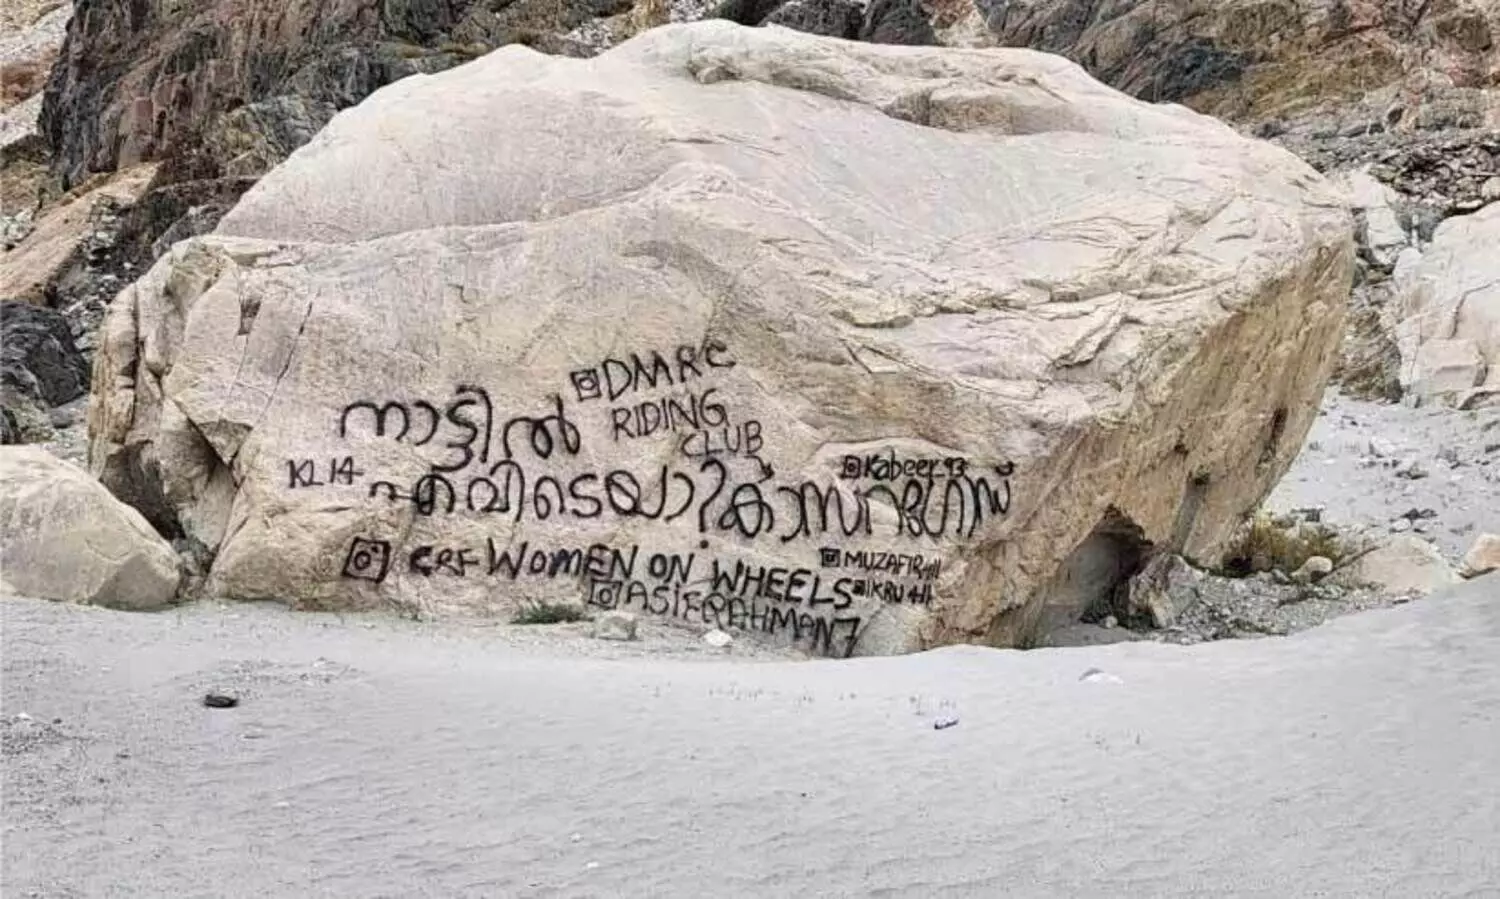 DMRC
RIDING
CLUB
നാട്ടിൽ
KL 14
എവിടെയാ? കാസറഗോഡ്
Kabeer_93
CRF WOMEN ON WHEELS
MUZAFIR411
IKRU411
ASIFRAHMAN7